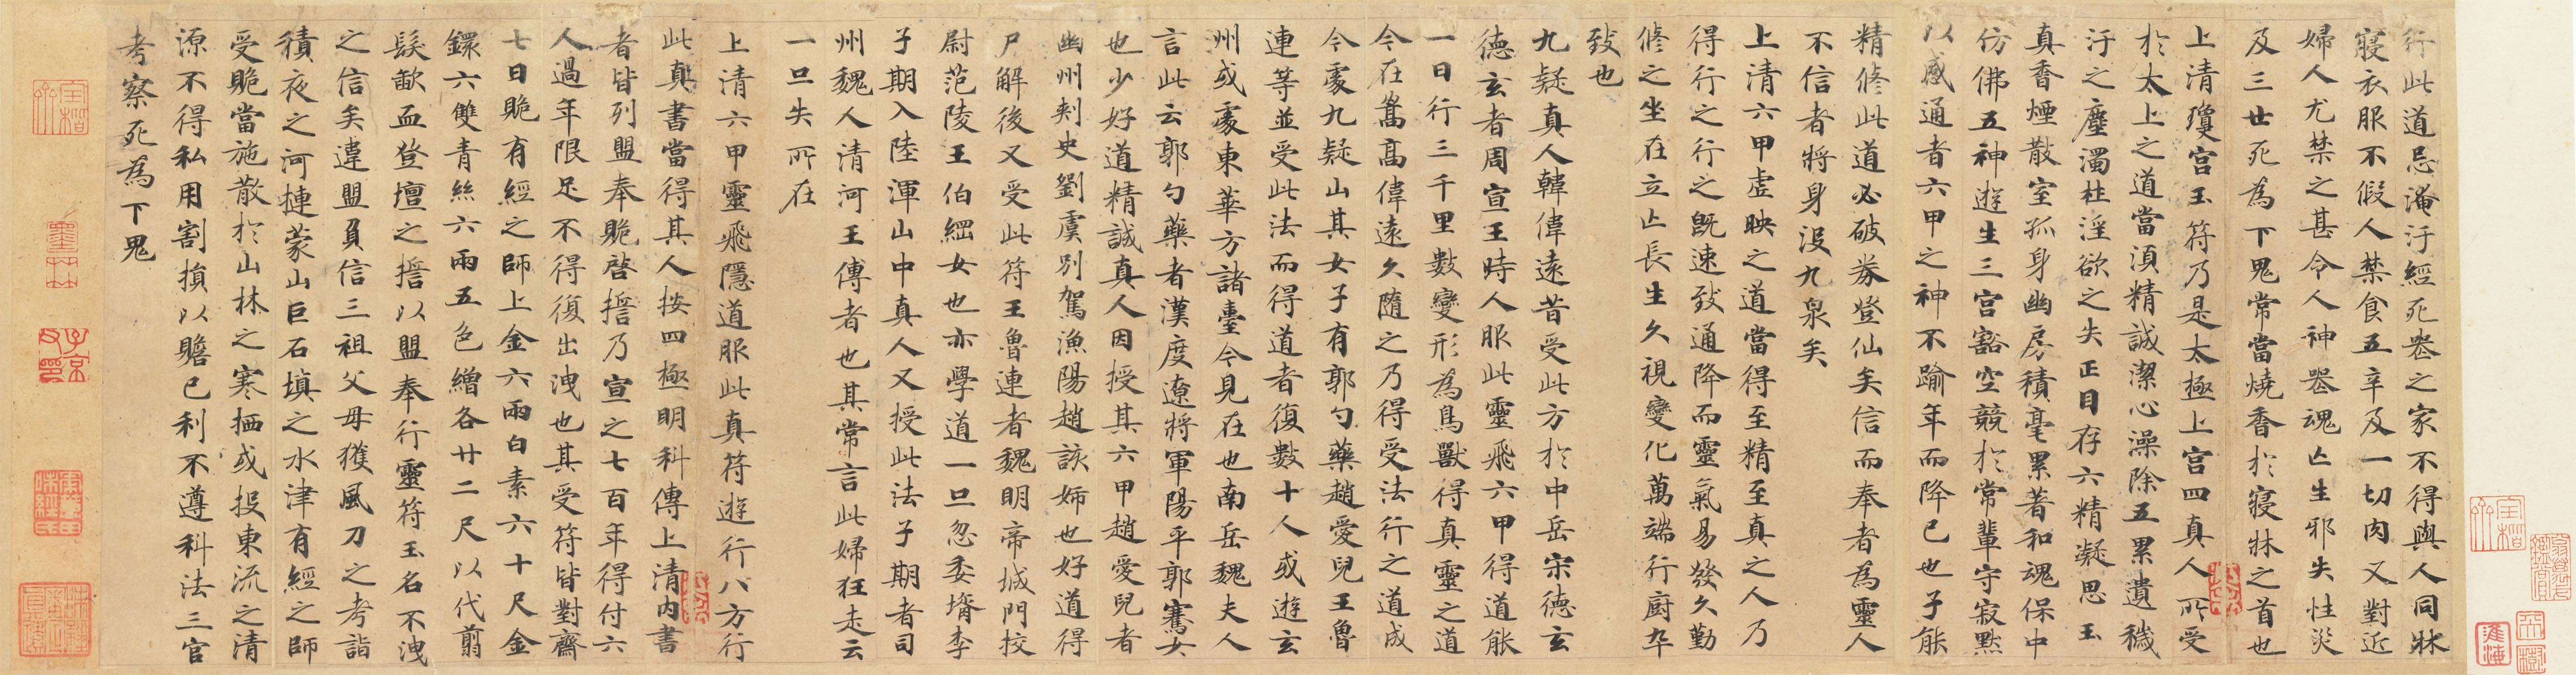 行此道忌淹汙經死喪之家不得與人同牀
寢衣服不假人禁食五辛及一切肉又對近
婦人尤禁之甚令人神喪魂亡生邪失性災
及三世死爲下鬼常當燒香於寢牀之首也
上清瓊宮玉符乃是太極上宮四真人所受
於太上之道當須精誠潔心澡除五累遺穢
汙之塵濁杜淫欲之失正目存六精凝思玉
真香煙散室孤身幽房積毫累著和魂保中
仿佛五神遊生三宮豁空競於常輩守寂默
以感通者六甲之神不踰年而降已也子能
精修此道必破券登仙矣信而奉者爲靈人
不信者將身沒九泉矣
上清六甲虛映之道當得至精至真之人乃
得行之行之既速致通降而靈氣易發久勤
修之坐在立亡長生久視變化萬端行廚卒
致也
九疑真人韓偉遠昔受此方於中岳宋德玄
德玄者周宣王時人服此靈飛六甲得道能
一日行三千里數變形爲鳥獸得真靈之道
今在嵩高偉遠久隨之乃得受法行之道成
今處九疑山其女子有郭勺藥趙愛兒王魯
連等並受此法而得道者復數十人或遊玄
州或處東華方諸臺今見在也南岳魏夫人
言此云郭勺藥者漢度遼將軍陽平郭騫女
也少好道精誠真人因授其六甲趙愛兒者
幽州刺史劉虞別駕漁陽趙該姊也好道得
尸解後又受此符王魯連者魏明帝城門校
尉范陵王伯綱女也亦學道一旦忽委壻李
子期入陸渾山中真人又授此法子期者司
州魏人清河王傅者也其常言此婦狂走云
一旦失所在
上清六甲靈飛隱道服此真符遊行八方行
此真書當得其人按四極明科傳上清內書
者皆列盟奉贶啓誓乃宣之七百年得付六
人過年限足不得復出洩也其受符皆對齋
七日贶有經之師上金六兩白素六十尺金
鐶六雙青絲六兩五色繒各廿二尺以代翦
髮歃血登壇之誓以盟奉行靈符玉名不洩
之信矣違盟負信三祖父母獲風刀之考詣
積夜之河摙蒙山巨石填之水津有經之師
受贶當施散於山林之寒栖或投東流之清
源不得私用割損以贍己利不遵科法三官
考察死爲下鬼